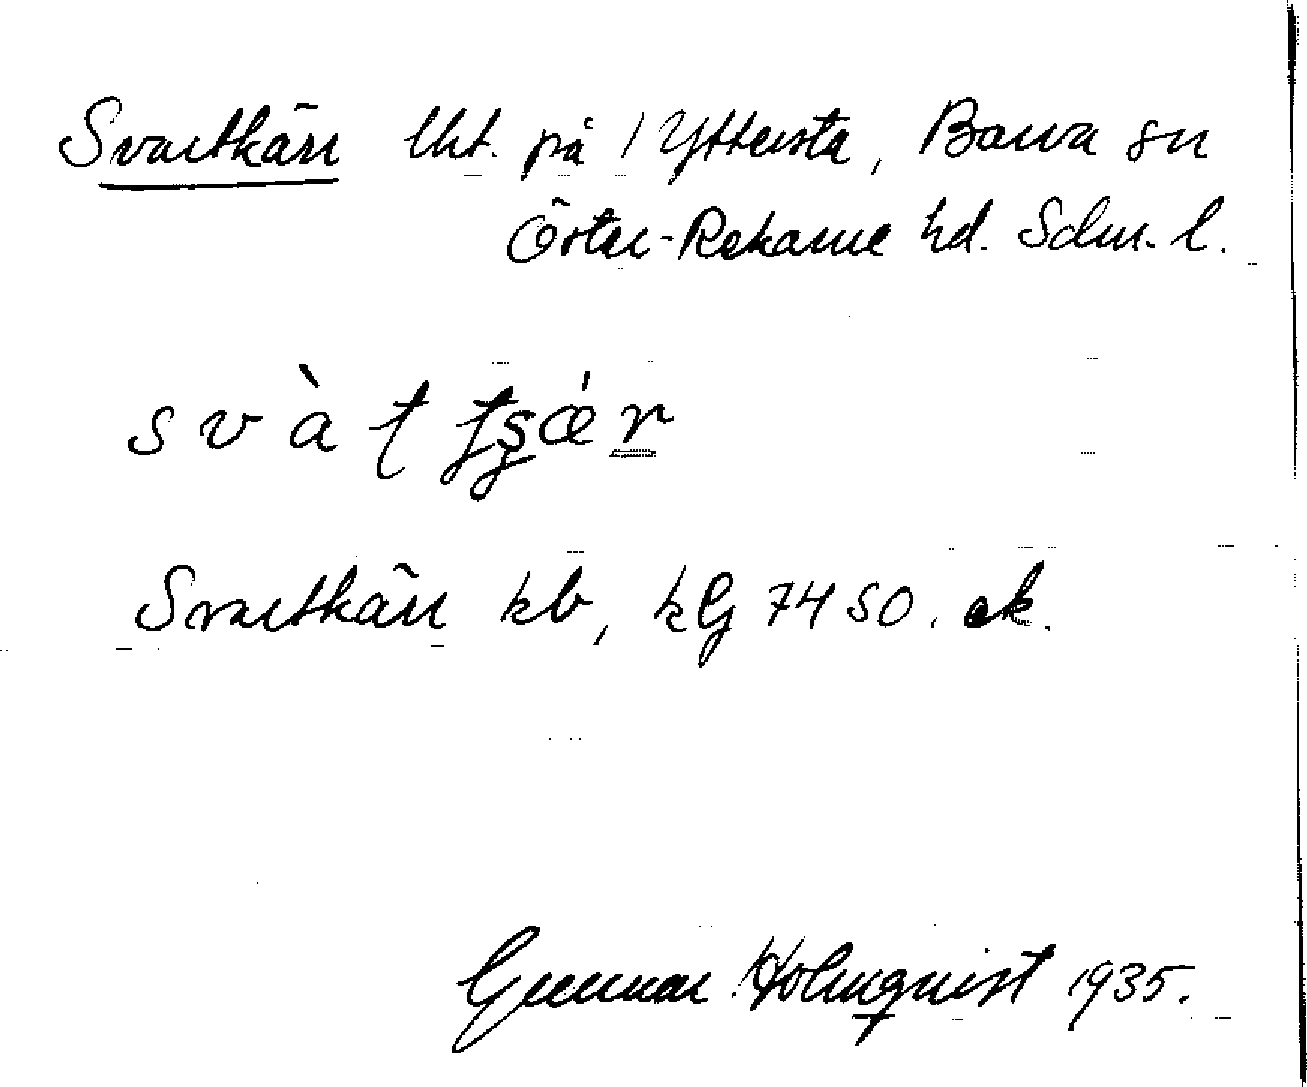 Svartkärr lht. på 1 Yttersta, Bärva sn
Öster-Rekarne hd. Sdm. l.
svàt tʂǽr
Svartkärr kb, kG 7450. ek.
Gunnar Holmqvist 1935.